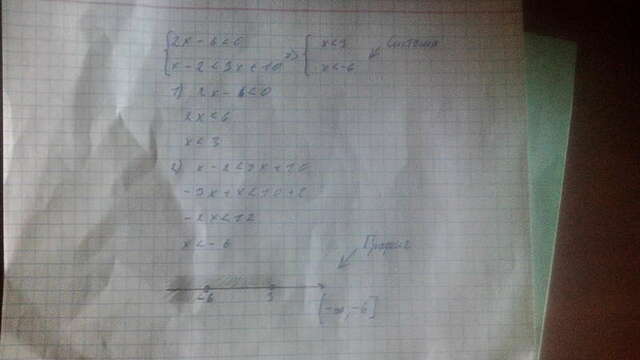 { 2x - 6 < 0
{ x - 2 < 3x + 10 => { x < 3
x < -6 Система
1) 2x - 6 < 0
2x < 6
x < 3
2) x - 2 < 3x + 10
-3x + x < 10 + 2
-2x < 12
x < -6
График
-6 3
[-∞, -6]